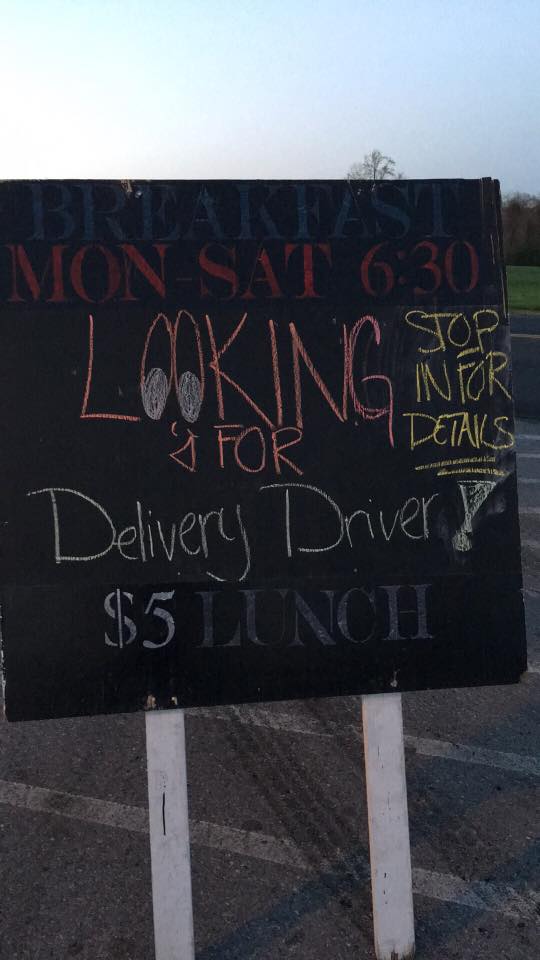 BREAKFAST
MON-SAT 6:30
LOOKING
FOR
STOP
IN FOR
DETAILS
Delivery Driver!
$5 LUNCH